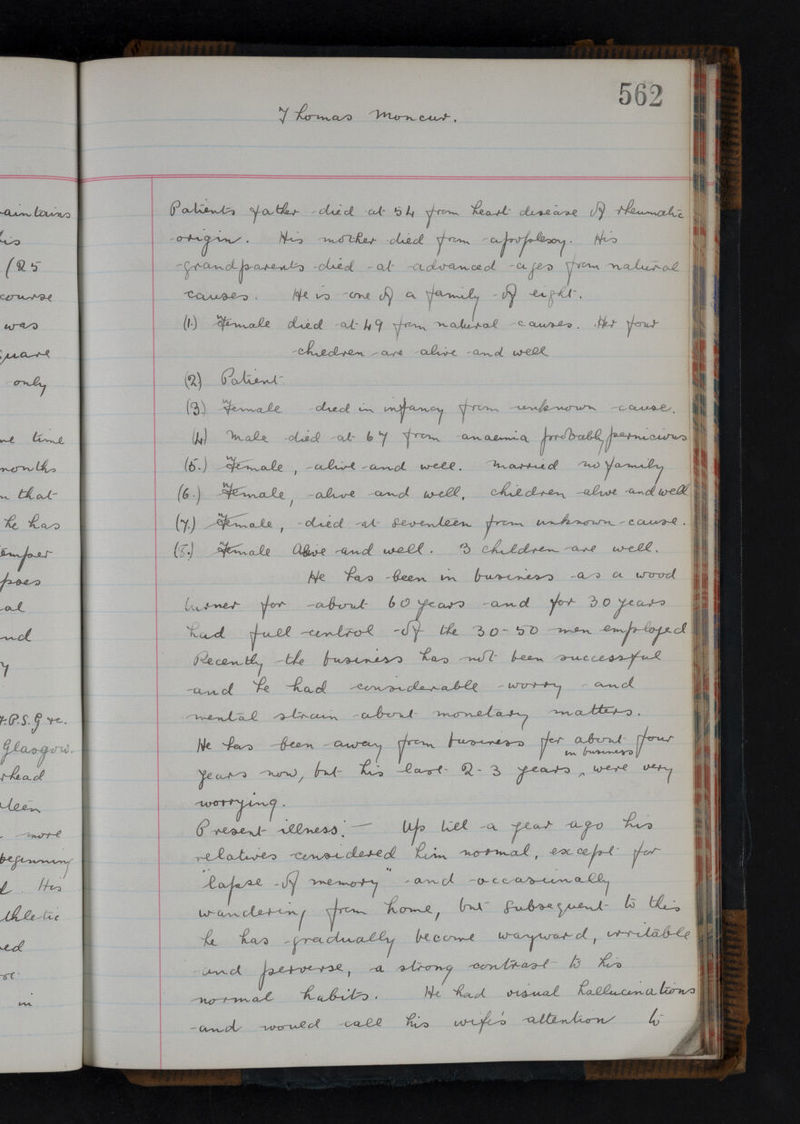 562
Thomas Moncur.
Patients father died at 54 from heart disease of rheumatic
origin. His mother died from apoplexy. His
grandparents died at advanced ages from natural
causes. He is one of a family of eight.
(1.) Female died at 49 from natural causes. Her four
children are alive and well
(2) Patient
(3) Female died in infancy from unknown cause.
(4) Male died at 67 from anaemia probably pernicious
(5.) Female, alive and well. Married no family
(6.) Female, alive and well, children alive and well
(7.) Female, died at seventeen from unknown cause.
(8.) Female Alive and well. 3 children are well.
He has been in business as a wood
turner for about 60 years and for 30 years
had full control of the 30-50 men employed
Recently the business has not been successful
and he had considerable worry and
mental strain about monetary matters.
He has been away from business for about four
years now, but his last 2-3 years in business were very
worrying.
Present illness:— Up till a year ago his
relatives considered him normal, except for
"lapse of memory" and occasionally
wandering from home, but subsequent to this
he has gradually become wayward, irritable
and perverse, a strong contrast to his
normal habits. He had visual hallucinations
and would call his wife's attention to
aintains
his
(25
course
was
quare
only
time
months
that
he has
emper
poses
al
nd
y
Glasgow.
rhead
more
beginning
His
thletic
ed
in